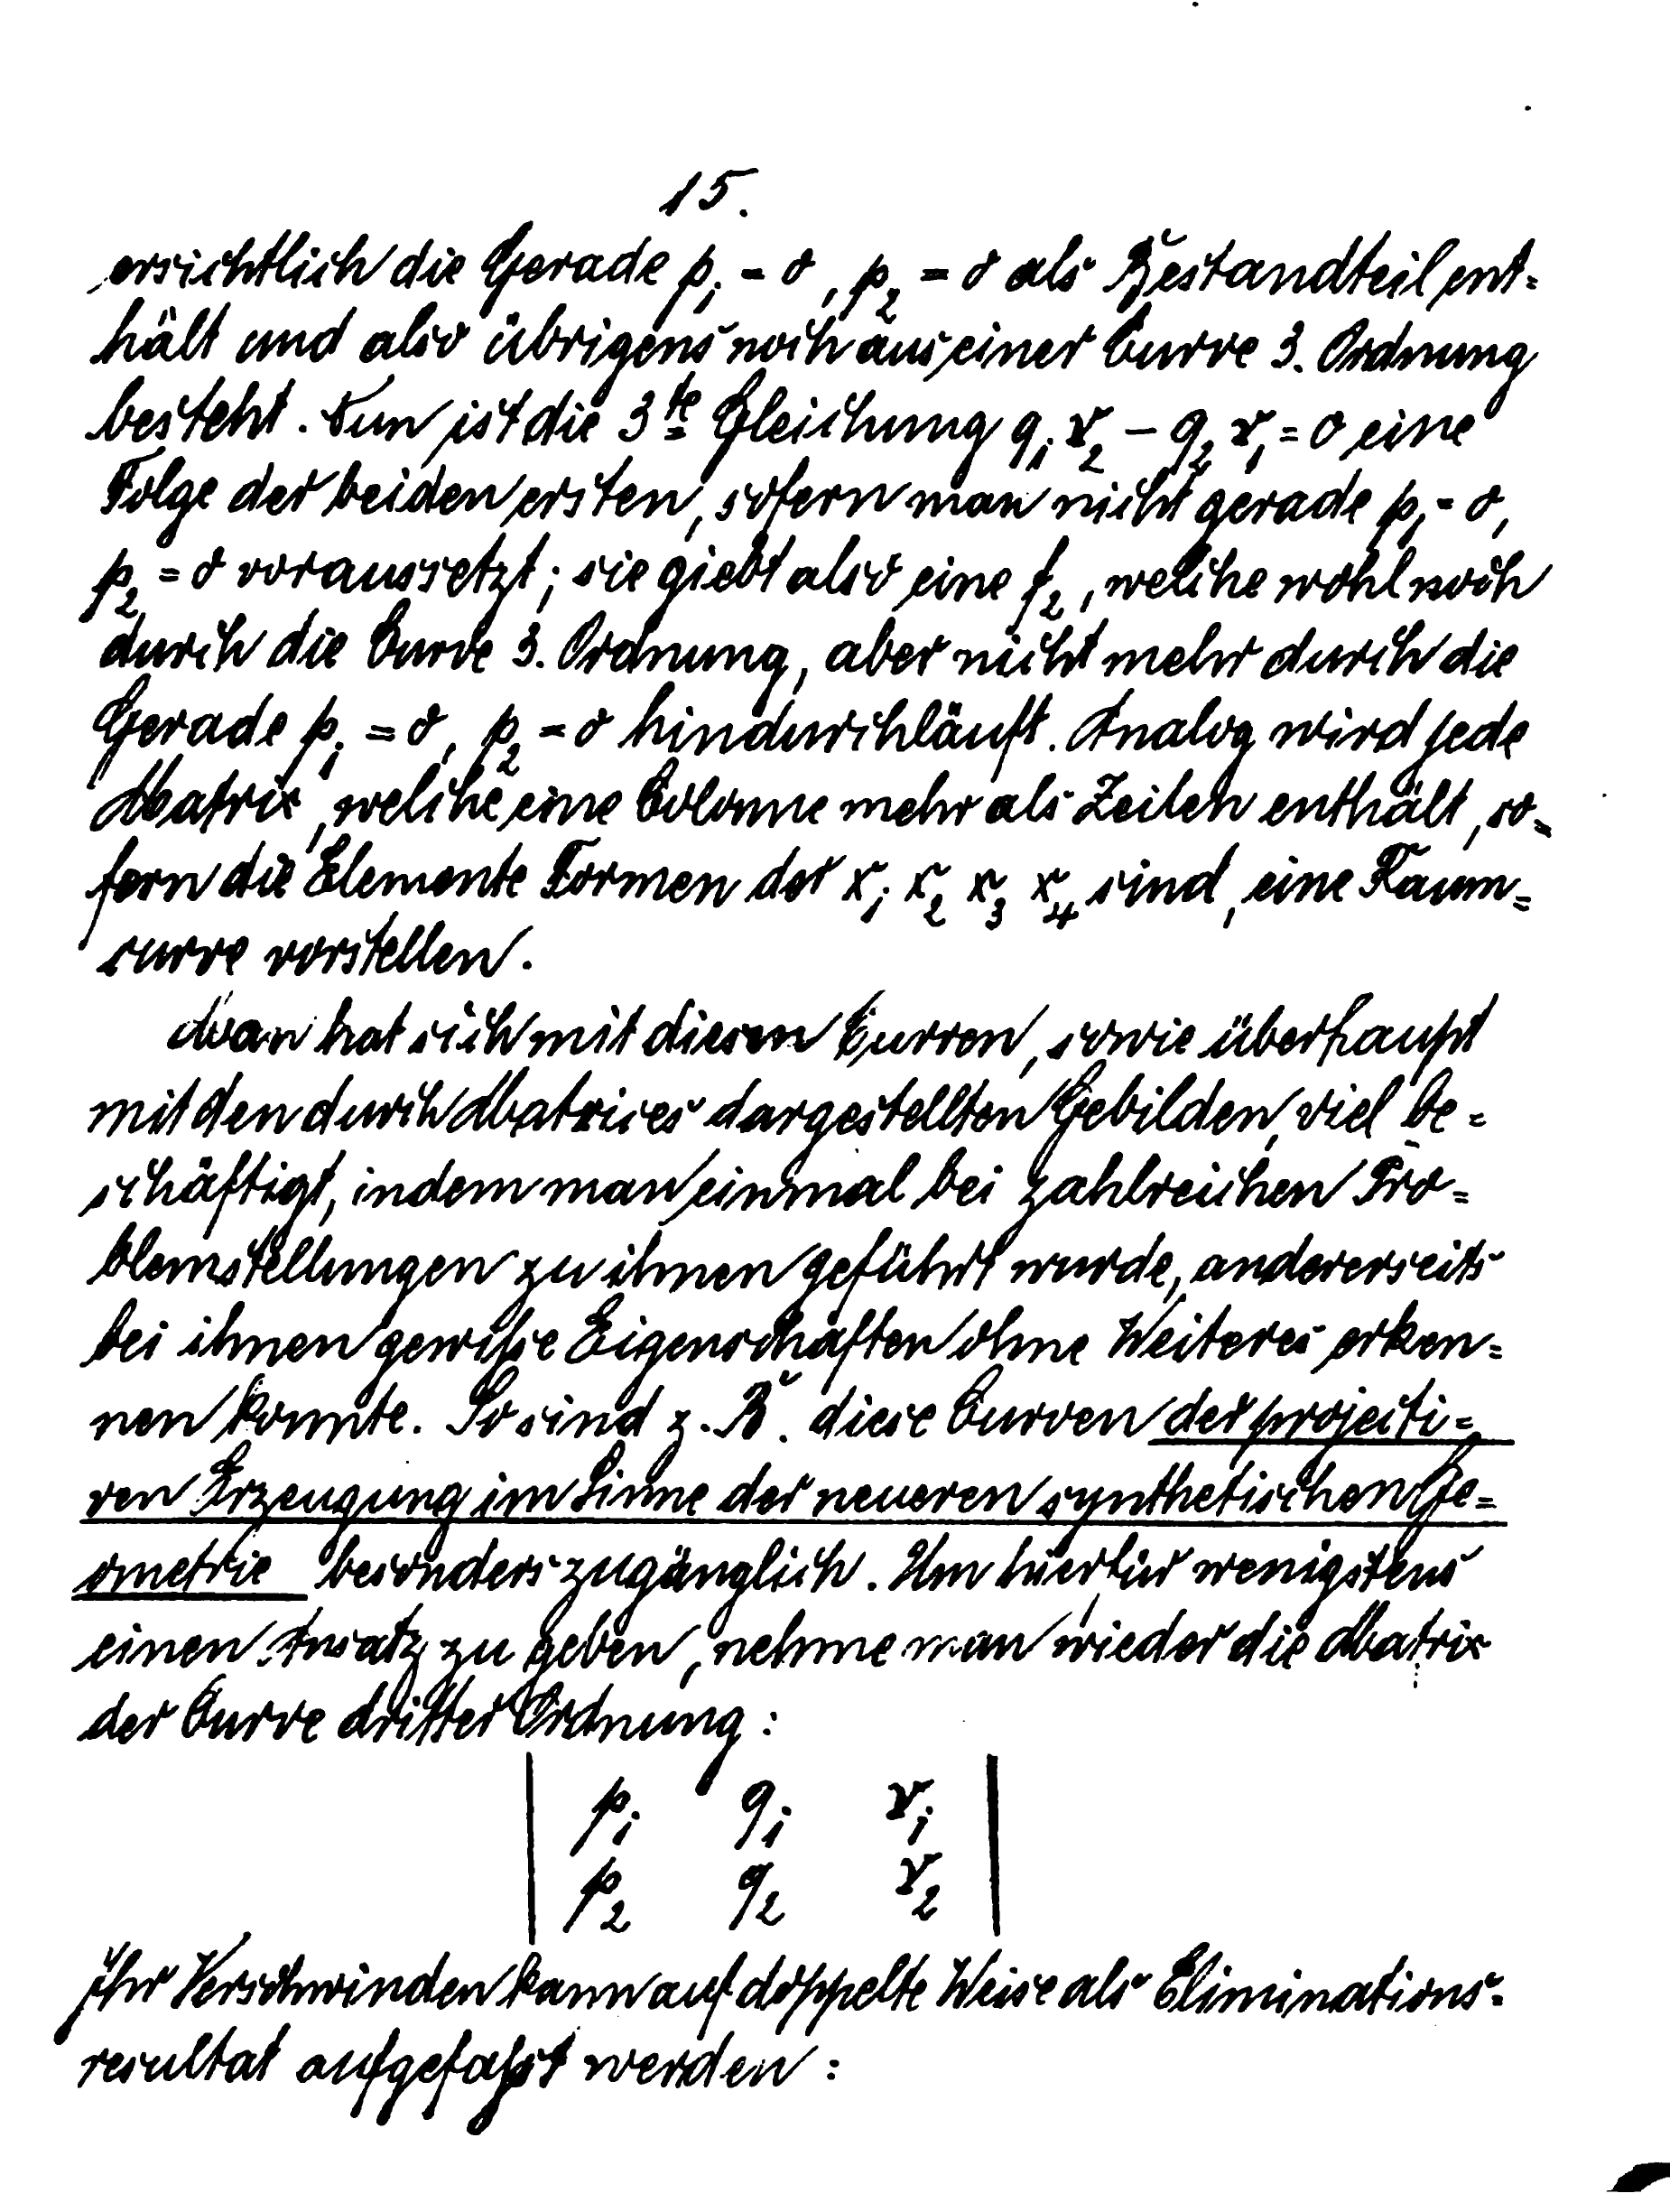 15.
ersichtlich die Gerade p₁ = 0, p₂ = 0 als Bestandteil ent=
hält und also übrigens noch aus einer Curve 3. Ordnung
besteht. Nun ist die 3te Gleichung q₁ r₂ – q₂ r₁ = 0 eine
Folge der beiden ersten, sofern man nicht gerade p₁ = 0,
p₂ = 0 voraussetzt; sie giebt also eine f₂, welche wohl noch
durch die Curve 3. Ordnung, aber nicht mehr durch die
Gerade p₁ = 0, p₂ = 0 hindurchläuft. Analog wird jede
Matrix, welche eine Colonne mehr als Zeilen enthält, so=
fern die Elemente Formen der x₁ x₂ x₃ x₄ sind, eine Raum=
curve vorstellen.
Man hat sich mit diesen Curven, sowie überhaupt
mit den durch Matrices dargestellten Gebilden, viel be=
schäftigt, indem man einmal bei zahlreichen Pro=
blemstellungen zu ihnen geführt wurde, andererseits
bei ihnen gewiße Eigenschaften ohne Weiteres erken=
nen konnte. So sind z. B. diese Curven der projecti=
ven Erzeugung im Sinne der neueren synthetischen Ge=
ometrie besonders zugänglich. Um hierfür wenigstens
einen Ansatz zu geben, nehme man wieder die Matrix
der Curve dritter Ordnung:
| p₁ q₁ r₁ |
| p₂ q₂ r₂ |
Ihr Verschwinden kann auf doppelte Weise als Eliminations=
resultat aufgefaßt werden: